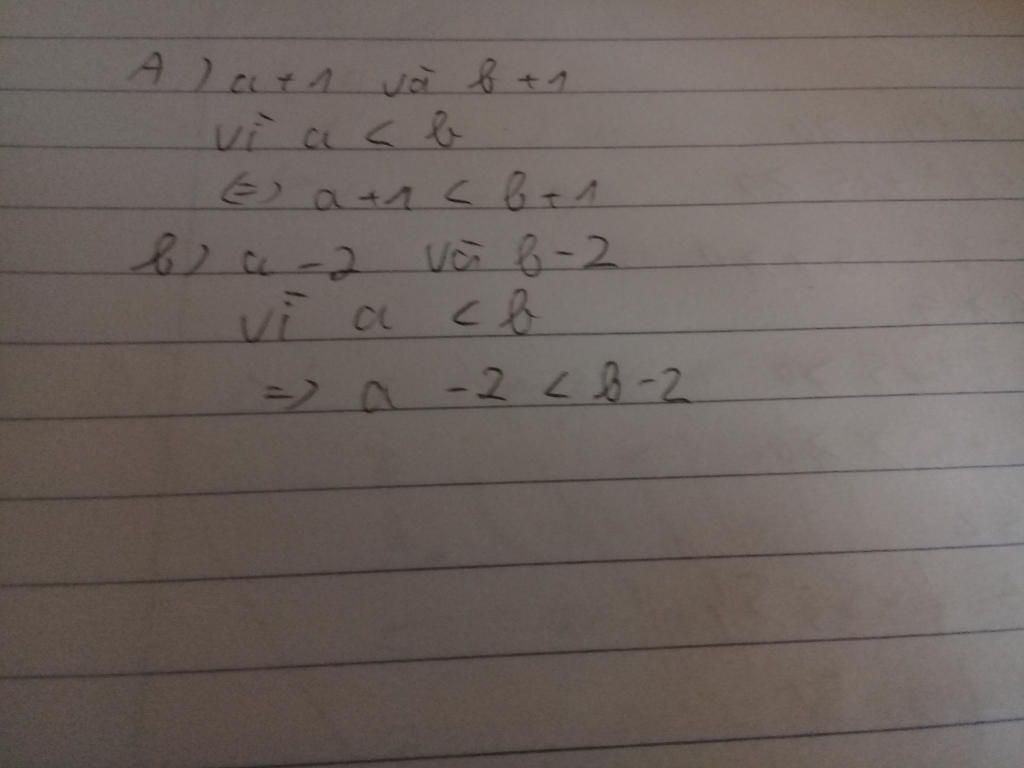 A) a+1 và b+1
vì a < b
<=> a+1 < b+1
b) a-2 và b-2
vì a < b
=> a -2 < b-2